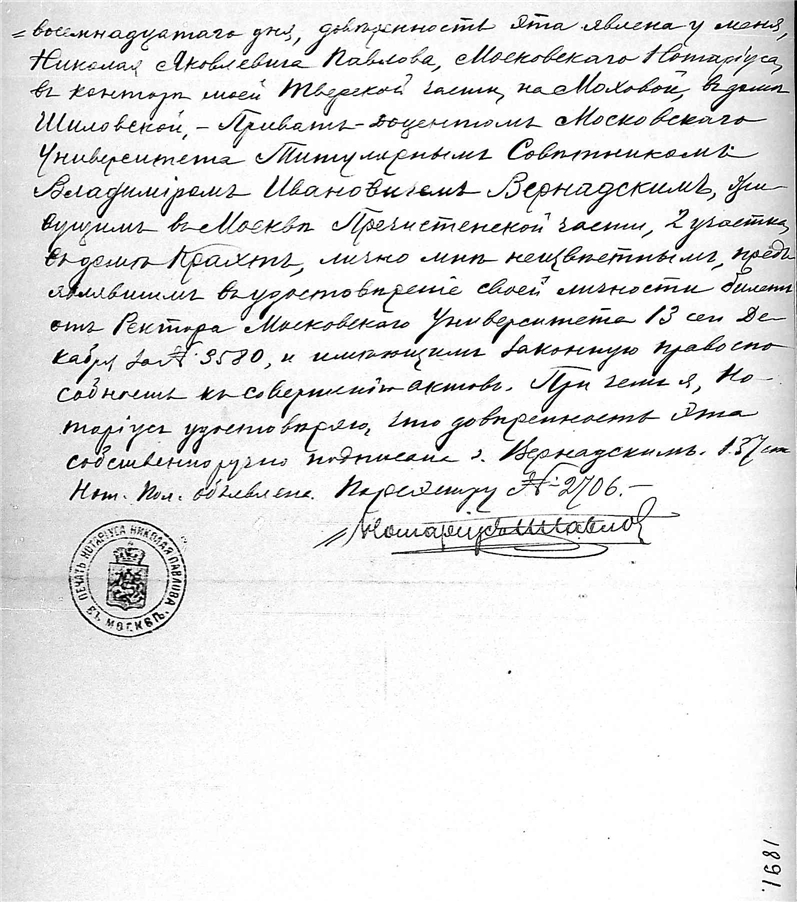 восемнадцатаго дня, довѣренность эта явлена у меня,
Николая Яковлевича Павлова, Московскаго Нотаріуса,
въ конторѣ моей Тверской части, на Моховой, въ домѣ
Шиловской, – Приватъ-доцентомъ Московскаго
Университета Титулярнымъ Совѣтникомъ
Владиміромъ Ивановичемъ Вернадскимъ, жи-
вущимъ въ Москвѣ Пречистенской части, 2 участка,
въ домѣ, лично мнѣ неизвѣстнымъ, предъ-
явившимъ въ удостовѣреніе своей личности билетъ
отъ Ректора Московскаго Университета 13 сего Де-
кабря за № 3580, и имѣющимъ законную правоспо-
собность къ совершенію актовъ. При чемъ я, Но-
таріусъ удостовѣряю, что довѣренность эта
собственноручно подписана г. Вернадскимъ. 137 ст.
Нот. Пол. объявлена. По реестру № 2706. –
Нотаріусъ Павловъ
ПЕЧАТЬ НОТАРІУСА НИКОЛАЯ ПАВЛОВА
ВЪ МОСКВѢ.
1891.